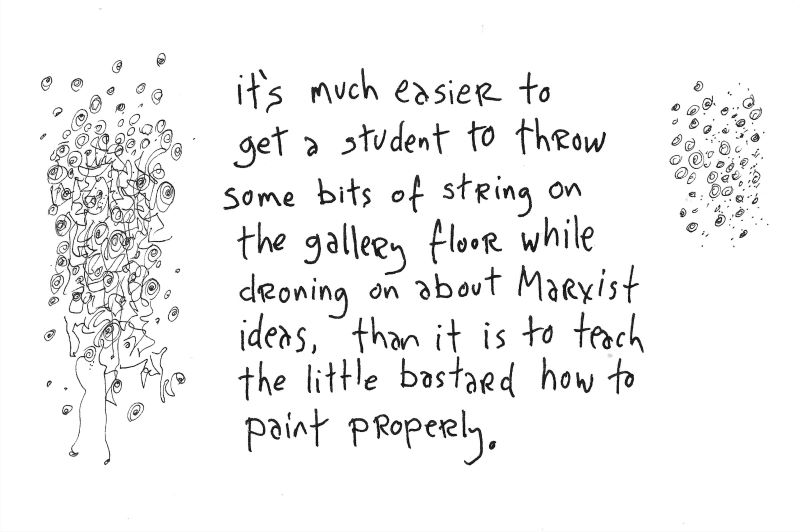 it's much easier to
get a student to throw
some bits of string on
the gallery floor while
droning on about Marxist
ideas, than it is to teach
the little bastard how to
paint properly.